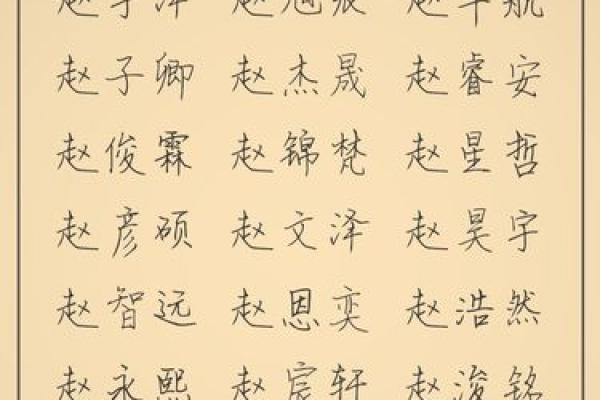 赵子卿 赵杰晟 赵睿安
赵俊霖 赵锦梵 赵星哲
赵彦硕 赵文泽 赵昊宇
赵智远 赵恩奕 赵浩然
赵永熙 赵宸轩 赵浚铭